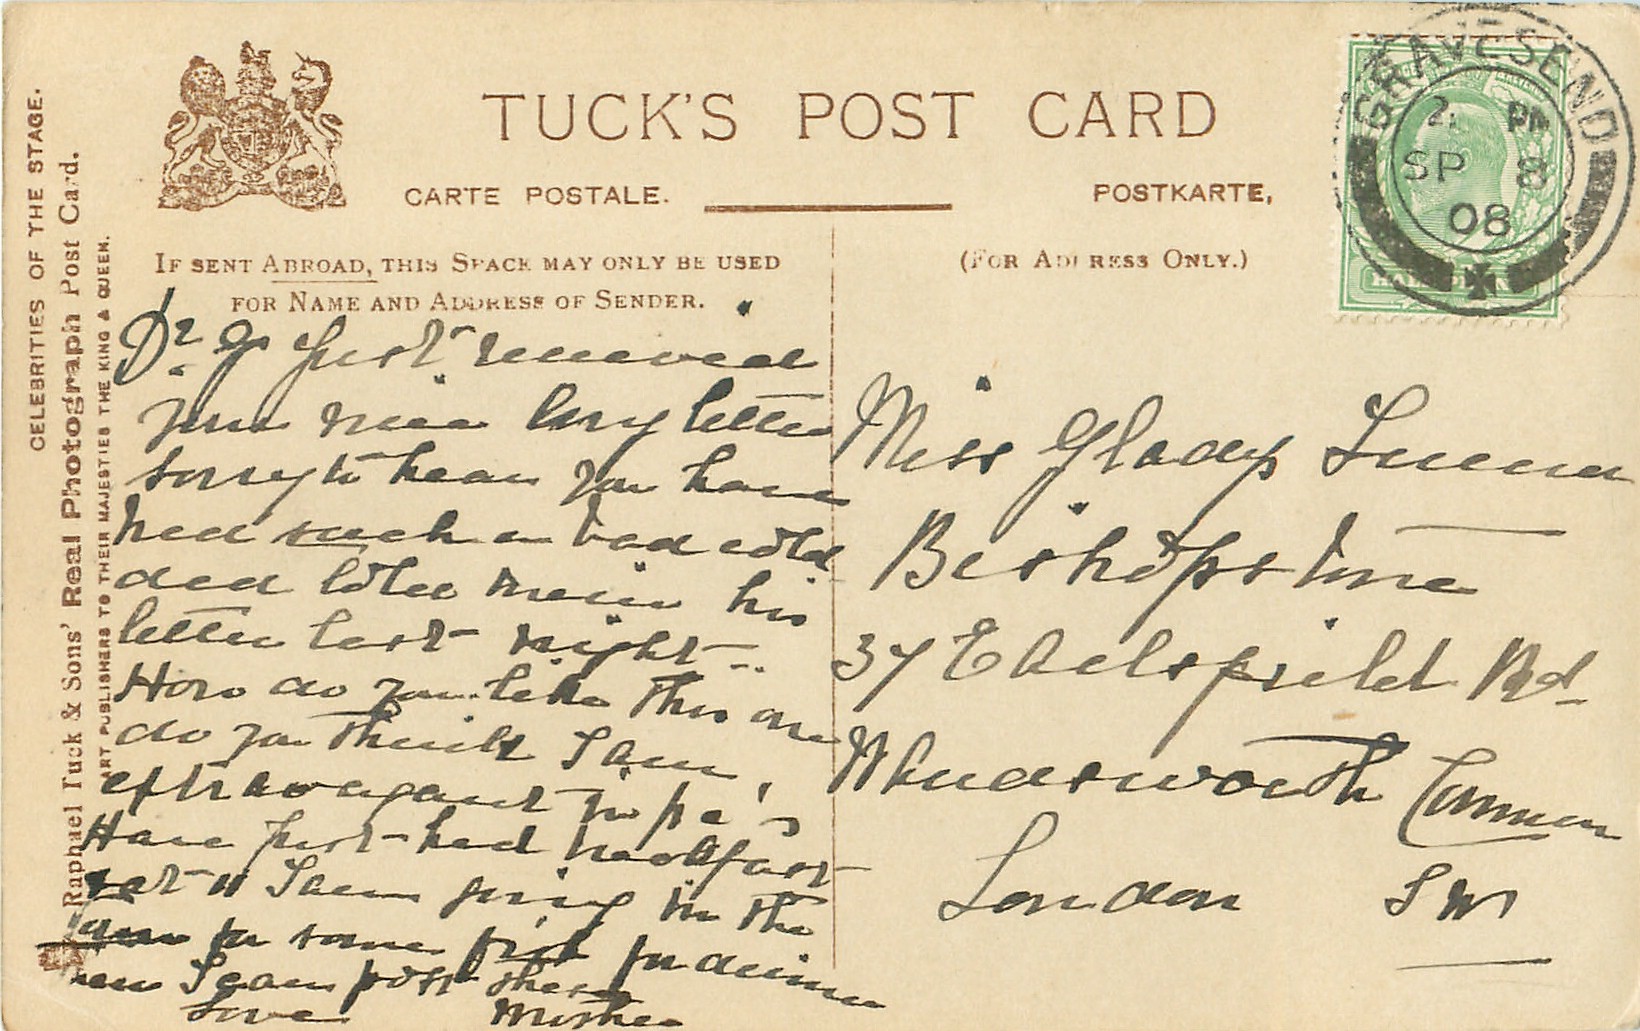 CELEBRITIES OF THE STAGE.
Raphael Tuck & Sons' Real Photograph Post Card.
ART PUBLISHERS TO THEIR MAJESTIES THE KING & QUEEN.
TUCK'S POST CARD
CARTE POSTALE.
POSTKARTE,
IF SENT ABROAD, THIS SPACE MAY ONLY BE USED
FOR NAME AND ADDRESS OF SENDER.
(FOR ADDRESS ONLY.)
GRAVESEND
PM
SP 8
08
Dr G just received
your nice long letter
sorry to hear you have
had such a bad cold
dad told me in his
letter last night
How do you like this one
do you think I am
extravagant in p.c's
Have just had breakfast
at 11 I am going in the
for some fish for dinner
I can post these
Love Mother
Miss Gladys
Bishopstone
37 Earlsfield Rd
Wandsworth Common
London SW